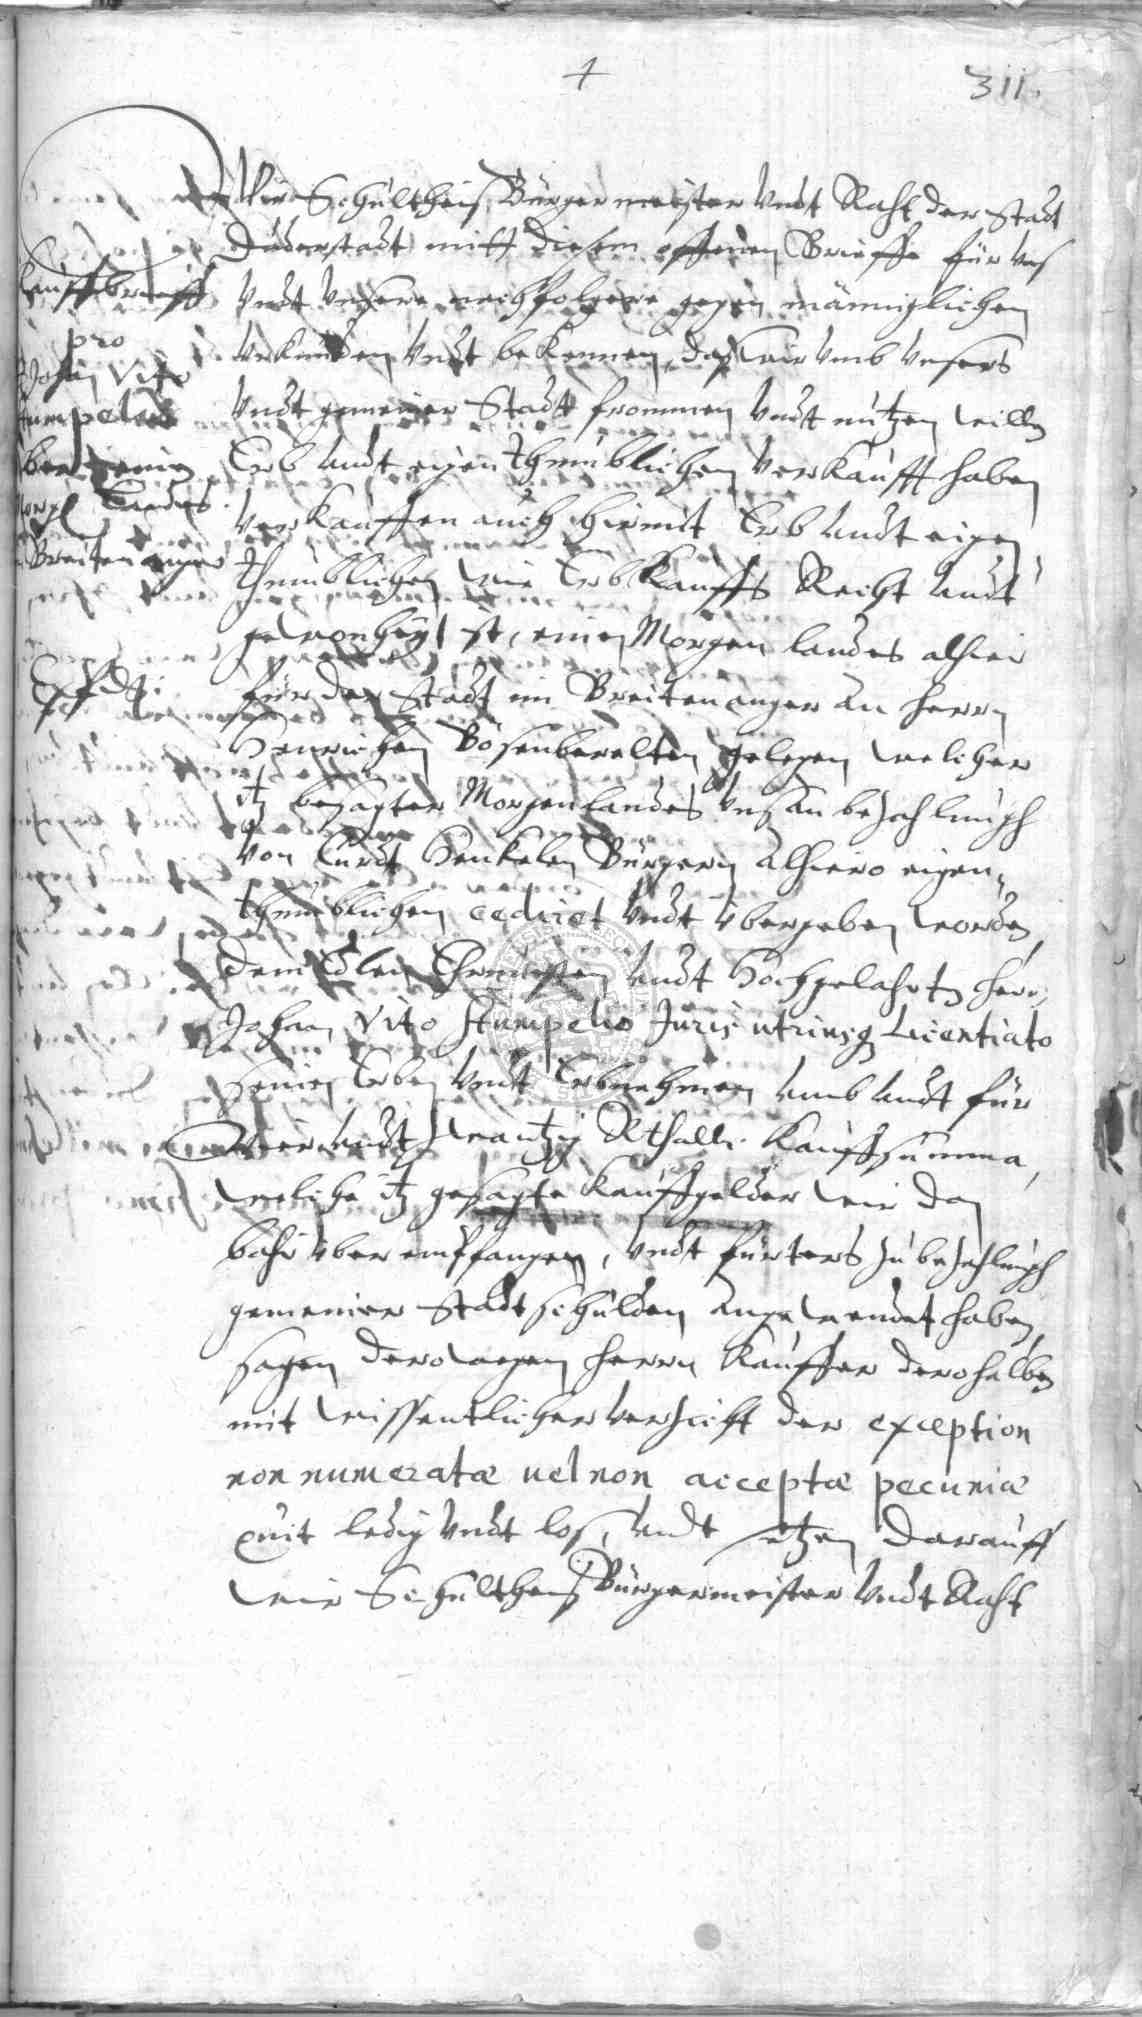 311.
Wir Schultheis Bürgermeister Undt Raht der Stadt
Duderstadt mitt diesem offenen Brieffe für Uns
Kauffbrieff
pro
Johan Vito
Stumpelio
Landes
Breitenanger
Undt Unsere nachfolgere gegen männiglichen
Urkunden Undt bekennen, daß wir Umb Unsers
Undt gemeiner Stadt frommen Undt nutzen willen
Erb Undt eigenthumblichen Verkaufft haben
Verkauffen auch hirmit Erb Undt eigen
thumblichen wie Erbkauffs Recht Undt
gewonheit ist, einen Morgen landes alhier
für der Stadt im Breitenanger an herrn
Henrichen Bosenberelten gelegen welicher
itz besagter Morgen landes Uns an bezahlungh
von Curdt Henkelen Bürgern alhiero eigen„
thumblichen cediret Undt übergeben worden
dem Edlen Ehrnvesten Undt Hochgelahrten herrn
Johan Vito Stumpelio Juris utriusq Licentiato
seinen Erben Undt Erbnehmen Umb Undt für
Vier Undt zwantzig Rthall. Kauffsumma,
weliche itz gesagte Kauffgelder wir dan
bahr über empfangen, Undt fürters zu bezahlungh
gemeiner Stadt schulden angewendet haben,
sagen derowegen herrn Kauffer derohalben
mit wissentlicher Verzicht der exception
non numeratæ vel non acceptæ pecuniæ
quit ledig Undt loß, Undt setzen darauff
wir Schultheis Bürgermeister Undt Raht